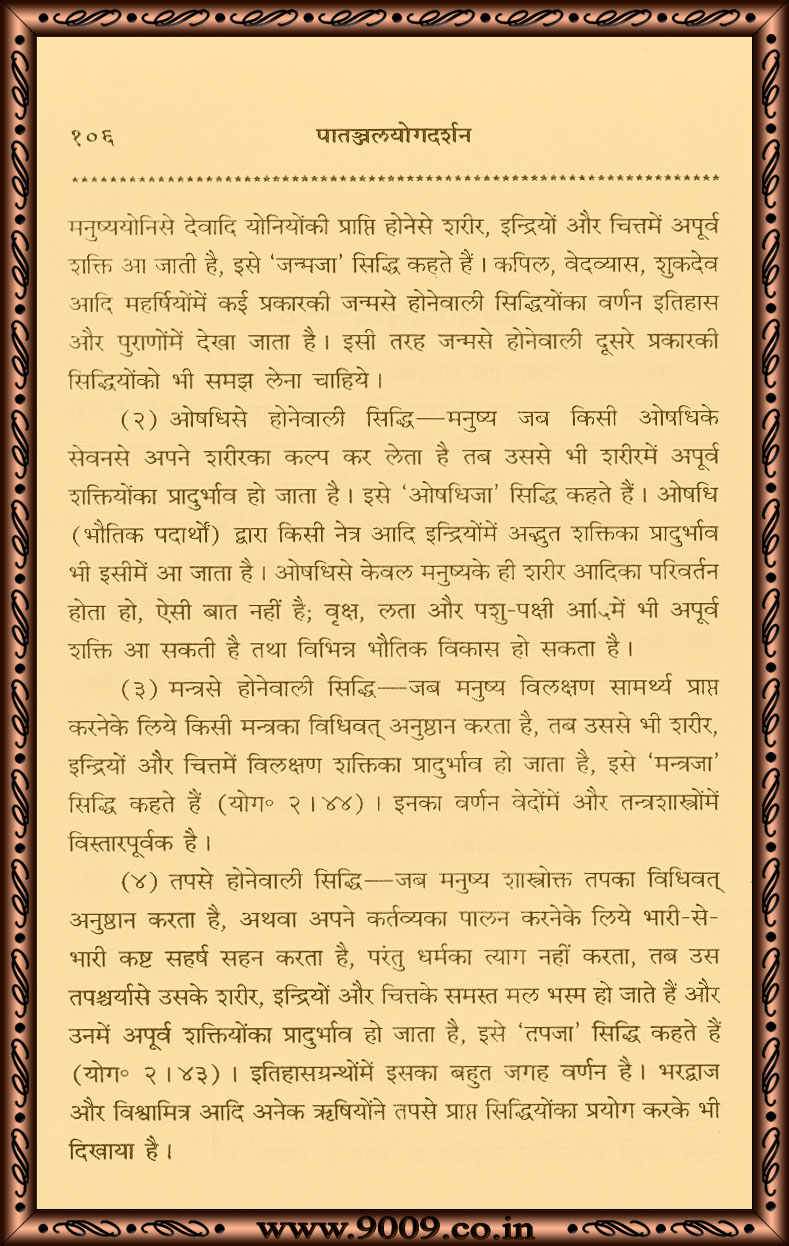 १०६ पातञ्जलयोगदर्शन
मनुष्ययोनिसे देवादि योनियोंकी प्राप्ति होनेसे शरीर, इन्द्रियों और चित्तमें अपूर्व
शक्ति आ जाती है, इसे ‘जन्मजा’ सिद्धि कहते हैं । कपिल, वेदव्यास, शुकदेव
आदि महर्षियोंमें कई प्रकारकी जन्मसे होनेवाली सिद्धियोंका वर्णन इतिहास
और पुराणोंमें देखा जाता है । इसी तरह जन्मसे होनेवाली दूसरे प्रकारकी
सिद्धियोंको भी समझ लेना चाहिये ।
(२) ओषधिसे होनेवाली सिद्धि—मनुष्य जब किसी ओषधिके
सेवनसे अपने शरीरका कल्प कर लेता है तब उससे भी शरीरमें अपूर्व
शक्तियोंका प्रादुर्भाव हो जाता है । इसे ‘ओषधिजा’ सिद्धि कहते हैं । ओषधि
(भौतिक पदार्थों) द्वारा किसी नेत्र आदि इन्द्रियोंमें अद्भुत शक्तिका प्रादुर्भाव
भी इसीमें आ जाता है । ओषधिसे केवल मनुष्यके ही शरीर आदिका परिवर्तन
होता हो, ऐसी बात नहीं है; वृक्ष, लता और पशु-पक्षी भी अपूर्व
शक्ति आ सकती है तथा विभिन्न भौतिक विकास हो सकता है ।
(३) मन्त्रसे होनेवाली सिद्धि—जब मनुष्य विलक्षण सामर्थ्य प्राप्त
करनेके लिये किसी मन्त्रका विधिवत् अनुष्ठान करता है, तब उससे भी शरीर,
इन्द्रियों और चित्तमें विलक्षण शक्तिका प्रादुर्भाव हो जाता है, इसे ‘मन्त्रजा’
सिद्धि कहते हैं (योग० २।४४) । इनका वर्णन वेदोंमें और तन्त्रशास्त्रोंमें
विस्तारपूर्वक है ।
(४) तपसे होनेवाली सिद्धि—जब मनुष्य शास्त्रोक्त तपका विधिवत्
अनुष्ठान करता है, अथवा अपने कर्तव्यका पालन करनेके लिये भारी-से-
भारी कष्ट सहर्ष सहन करता है, परंतु धर्मका त्याग नहीं करता, तब उस
तपश्चर्यासे उसके शरीर, इन्द्रियों और चित्तके समस्त मल भस्म हो जाते हैं और
उनमें अपूर्व शक्तियोंका प्रादुर्भाव हो जाता है, इसे ‘तपजा’ सिद्धि कहते हैं
(योग० २।४३) । इतिहासग्रन्थोंमें इसका बहुत जगह वर्णन है । भरद्वाज
और विश्वामित्र आदि अनेक ऋषियोंने तपसे प्राप्त सिद्धियोंका प्रयोग करके भी
दिखाया है ।
www.9009.co.in